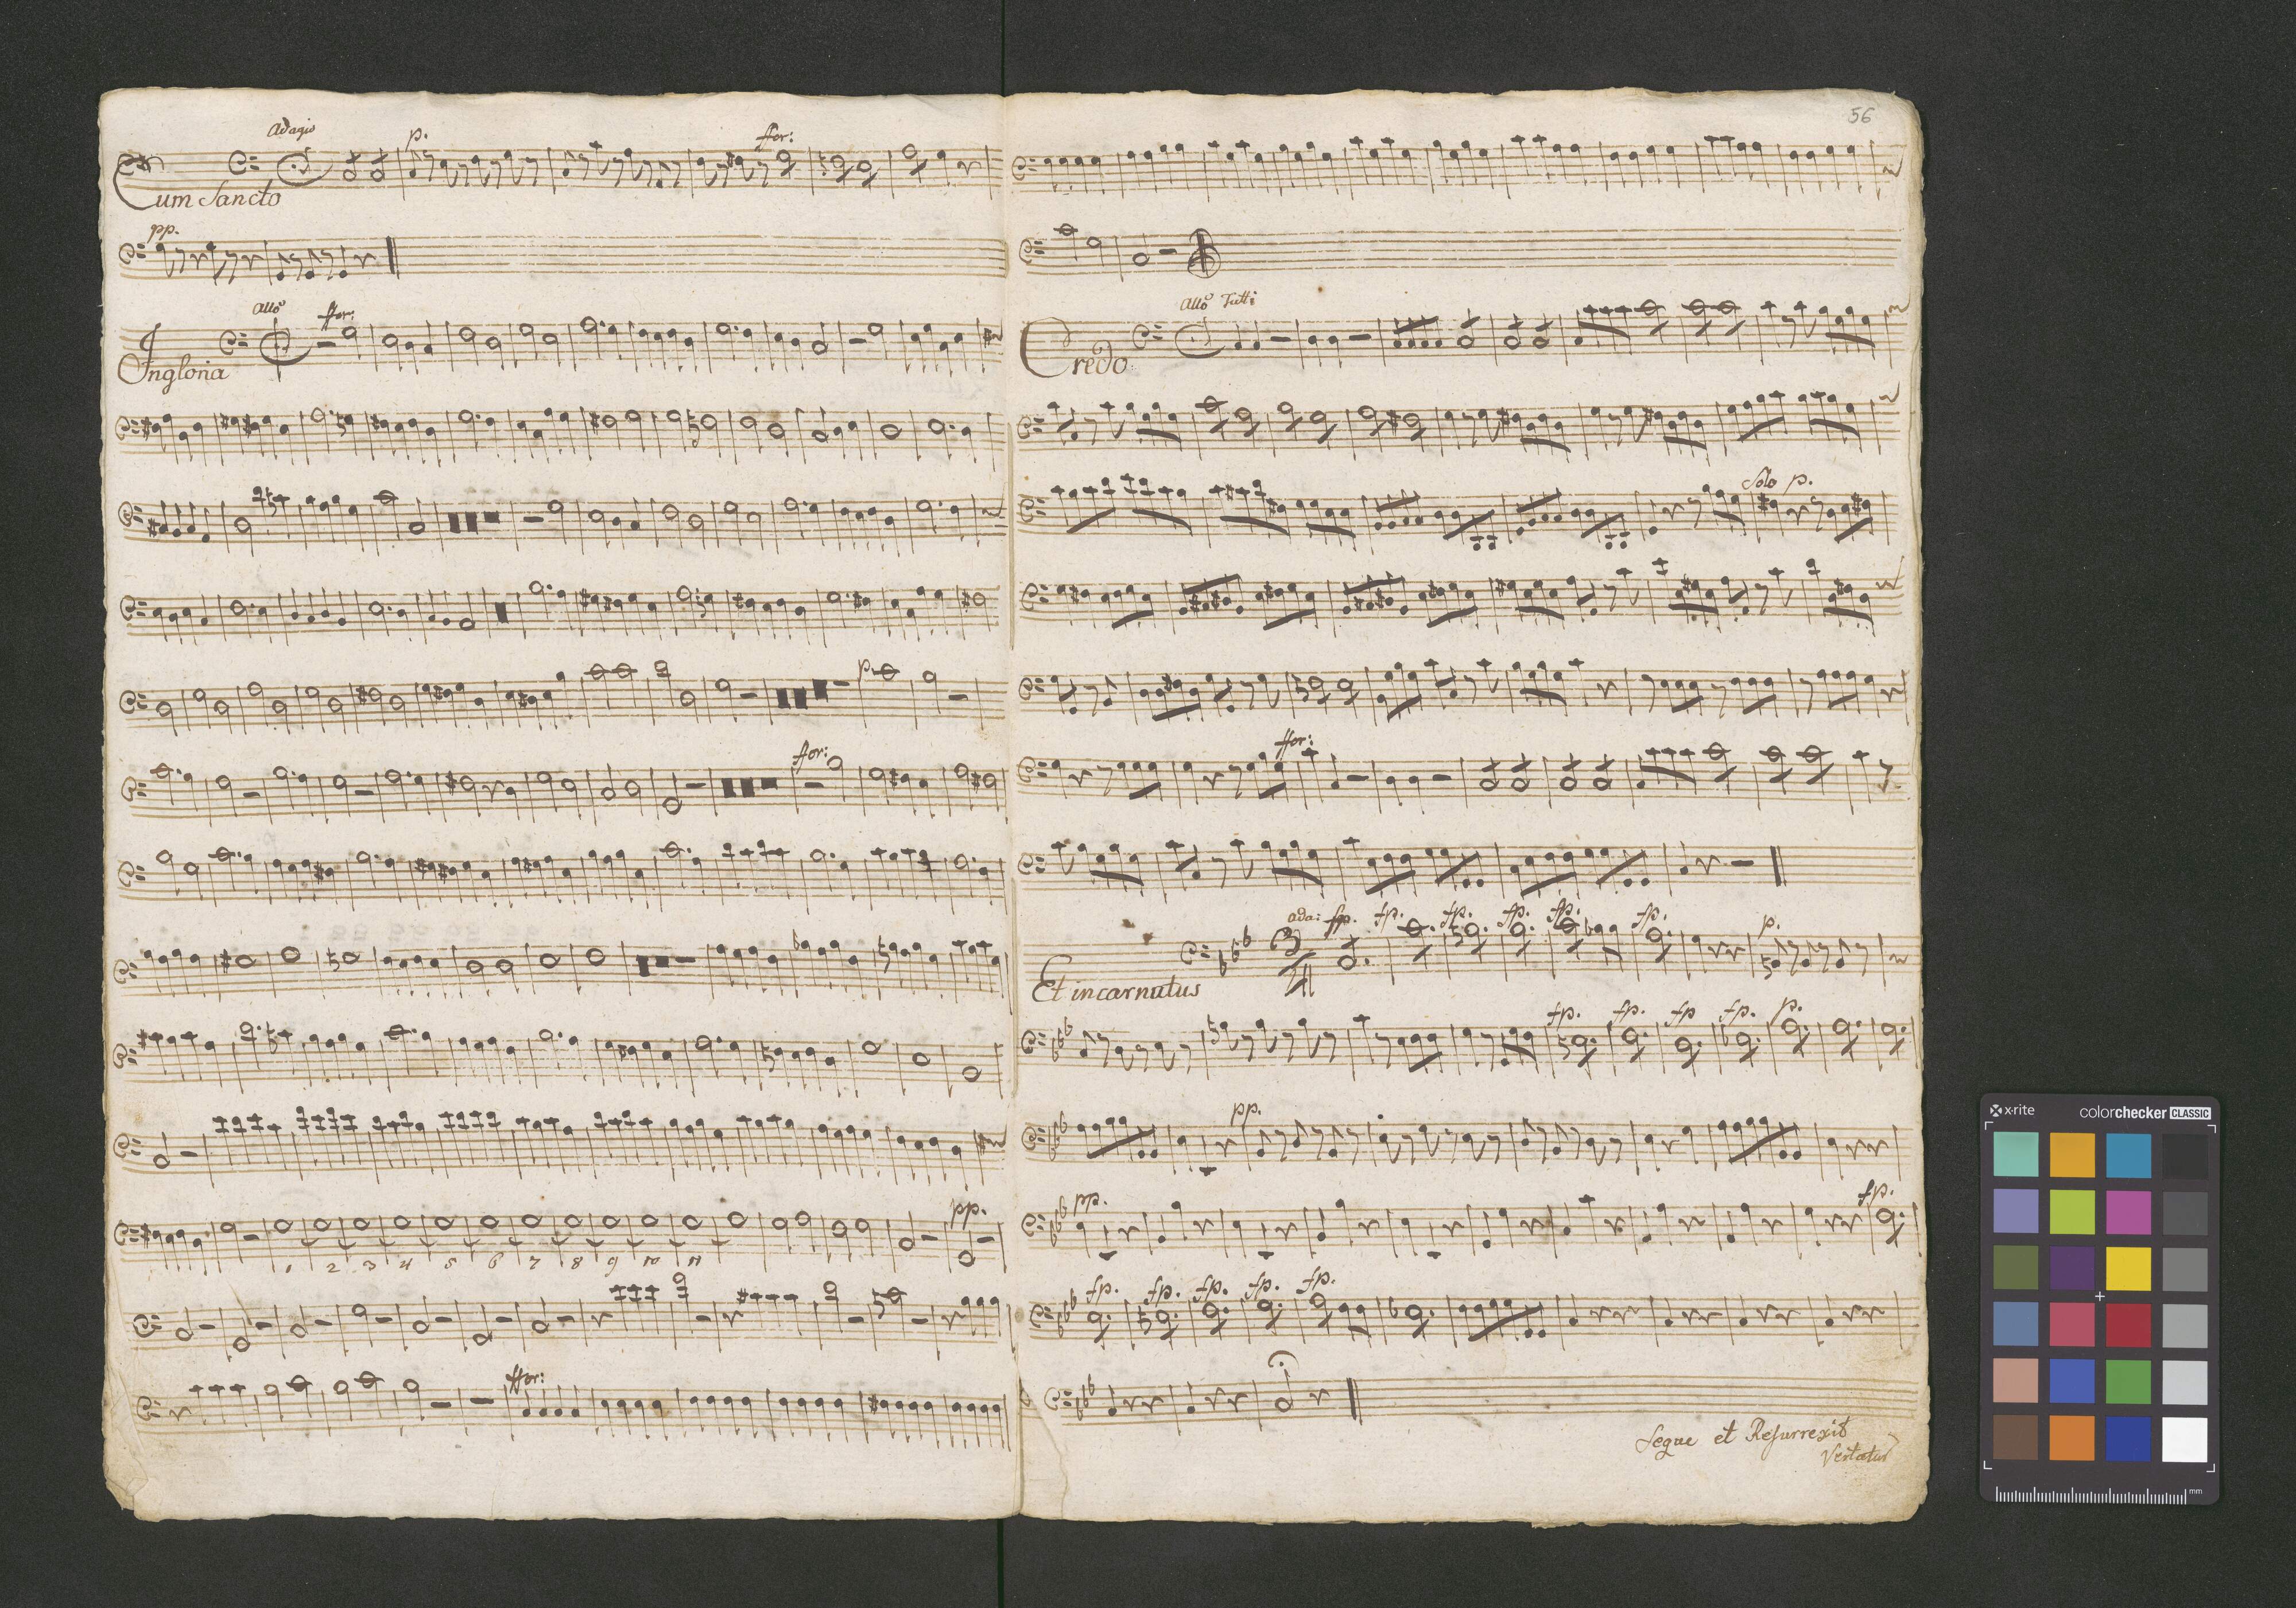 Adagio p. ffor:
Cum Sancto
pp.
Allo ffor:
In gloria
p.
ffor:
1 2 3 4 5 6 7 8 9 10 11 pp.
ffor:
56
Allo Tutti
Credo
Solo p.
ffor:
ada: fp. fp. fp. fp. fp. fp. p.
3
4
Et incarnatus
fp. fp. fp fp. p.
pp.
pp. fp.
fp. fp. fp. fp. fp.
Segue et Resurrexit
Vertatur
x-rite colorchecker CLASSIC
mm